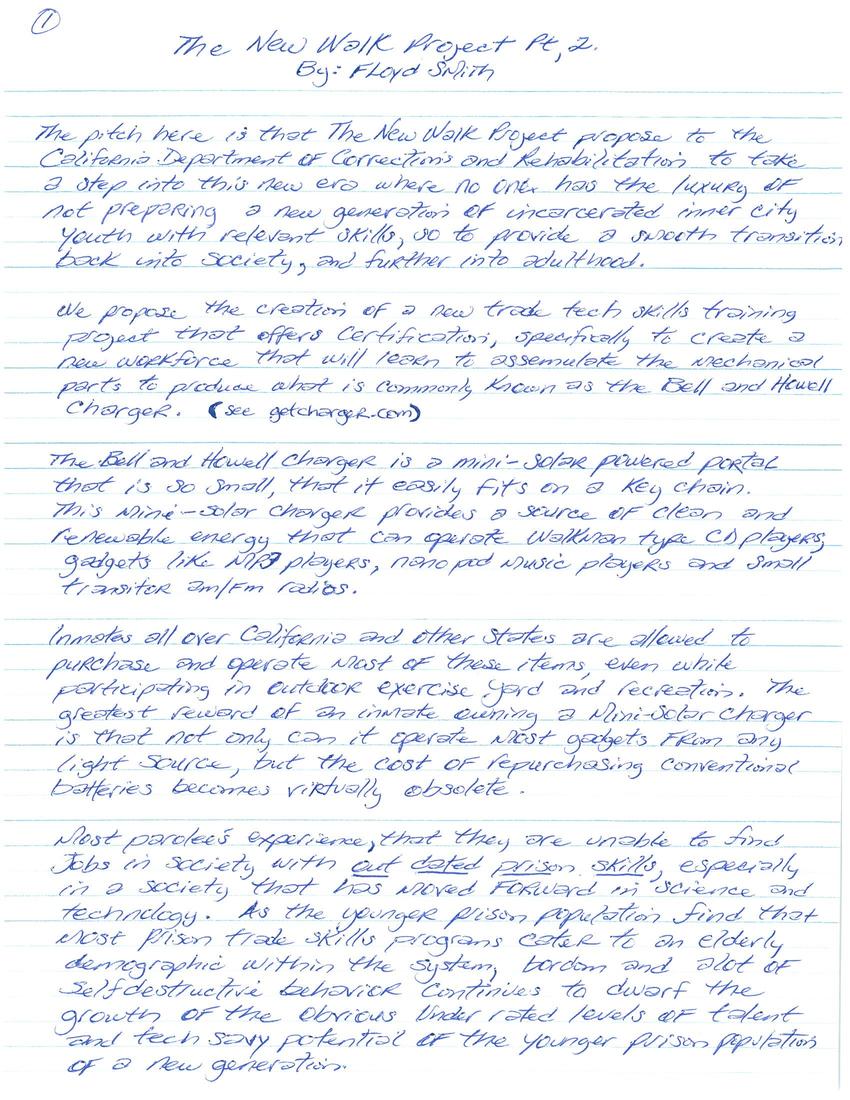 1
The New Walk Project Pt, 2.
By: Floyd Smith
The pitch here is that The New Walk Project propose to the
California Department of Corrections and Rehabilitation to take
a step into this new era where no one has the luxury of
not preparing a new generation of incarcerated inner city
youth with relevant skills, so to provide a smooth transition
back into society, and further into adulthood.
We propose the creation of a new trade tech skills training
project that offers Certification, specifically to create a
new workforce that will learn to assemulate the mechanical
parts to produce what is commonly known as the Bell and Howell
Charger. (see getcharger.com)
The Bell and Howell Charger is a mini-solar powered portal
that is so small, that it easily fits on a key chain.
This Mini-solar charger provides a source of clean and
renewable energy that can operate Walkman type CD players,
gadgets like MP3 players, nano pod music players and small
transitor am/Fm radios.
Inmates all over California and other States are allowed to
purchase and operate most of these items, even while
participating in outdoor exercise yard and recreation. The
greatest reward of an inmate owning a Mini-Solar charger
is that not only can it operate most gadgets from any
light source, but the cost of repurchasing conventional
batteries becomes virtually obsolete.
Most parolee's experience, that they are unable to find
Jobs in society with out dated prison skills, especially
in a society that has moved forward in science and
technology. As the younger prison population find that
most prison trade skills programs cater to an elderly
demographic within the system, bordom and alot of
Self destructive behavior continues to dwarf the
growth of the obvious Under rated levels of talent
and tech savy potential of the younger prison population
of a new generation.